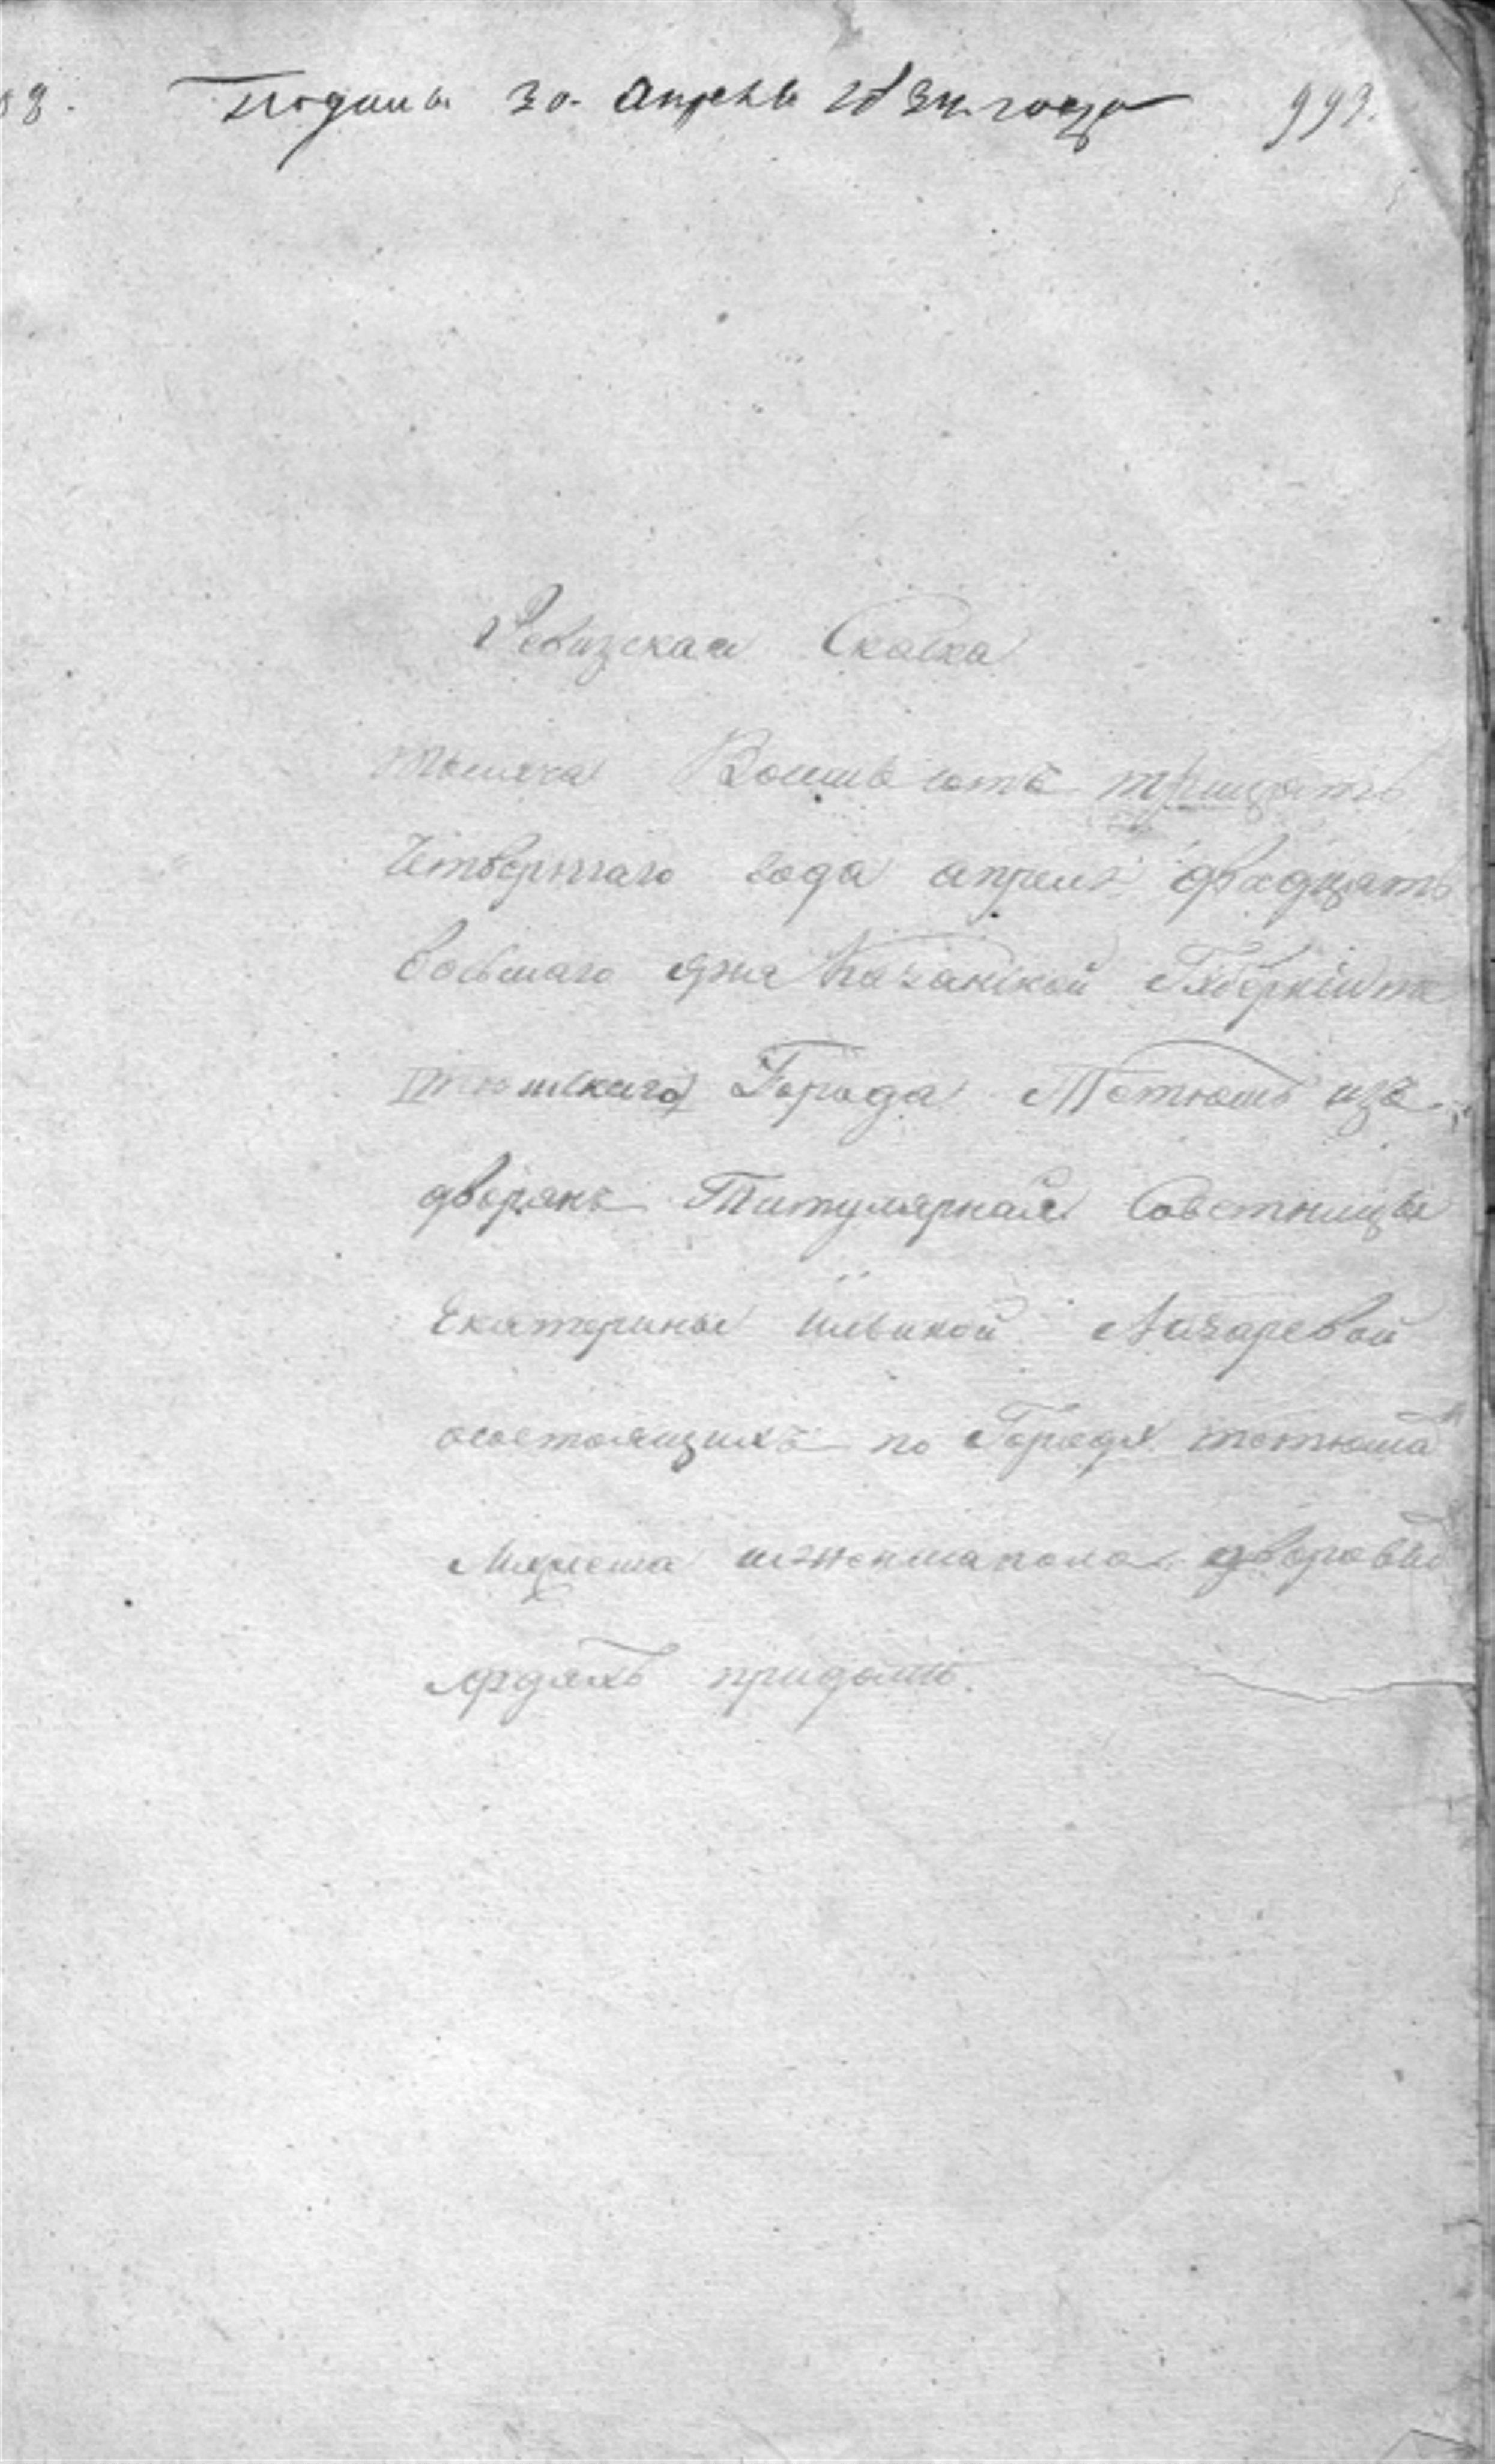 08. Подана 30. Апреля 1834. года 999.
Ревизская Скаска
тысяча Восемь сотъ тридцать
Четвертаго года апреля двадцать
восьмаго дня Казанской Губерніи те
тюшскаго Города Тетюшъ изъ
дворянъ Титулярная Советница
Екатерины ильиной Лазаревой
осостоящихъ по Городу тетюша
мужеска иженскаполо дворовы
людяхъ придомъ.